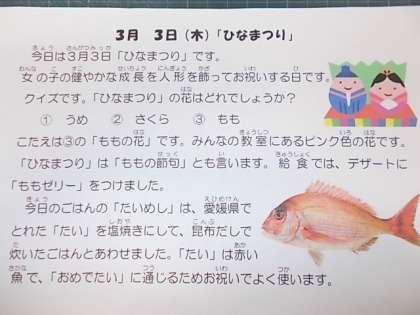 3月 3日(木)「ひなまつり」
今日は3月3日「ひなまつり」です。
女の子の健やかな成長を人形を飾ってお祝いする日です。
クイズです。「ひなまつり」の花はどれでしょうか?
① うめ ② さくら ③ もも
こたえは③の「ももの花」です。みんなの教室にあるピンク色の花です。
「ひなまつり」は「ももの節句」とも言います。給食では、デザートに
「ももゼリー」をつけました。
今日のごはんの「たいめし」は、愛媛県で
とれた「たい」を塩焼きにして、昆布だしで
炊いたごはんとあわせました。「たい」は赤い
魚で、「おめでたい」に通じるためお祝いでよく使います。